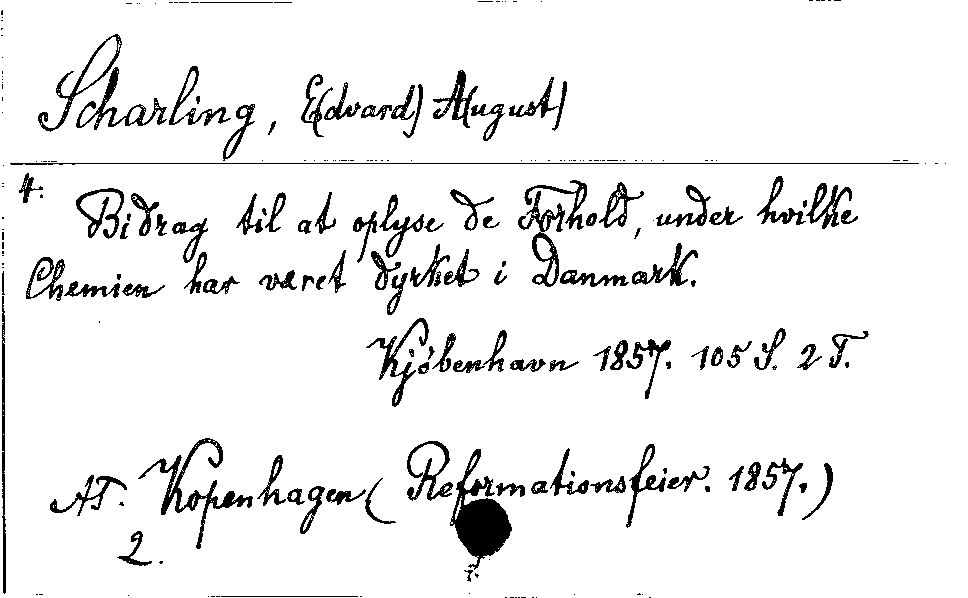 Scharling, E(dvard) A(ugust)
4.
Bidrag til at oplyse de Forhold, under hvilke
Chemien har været dyrket i Danmark.
Kjöbenhavn 1857. 105 S. 2 T.
AT. Kopenhagen (Reformationsfeier. 1857.)
2.